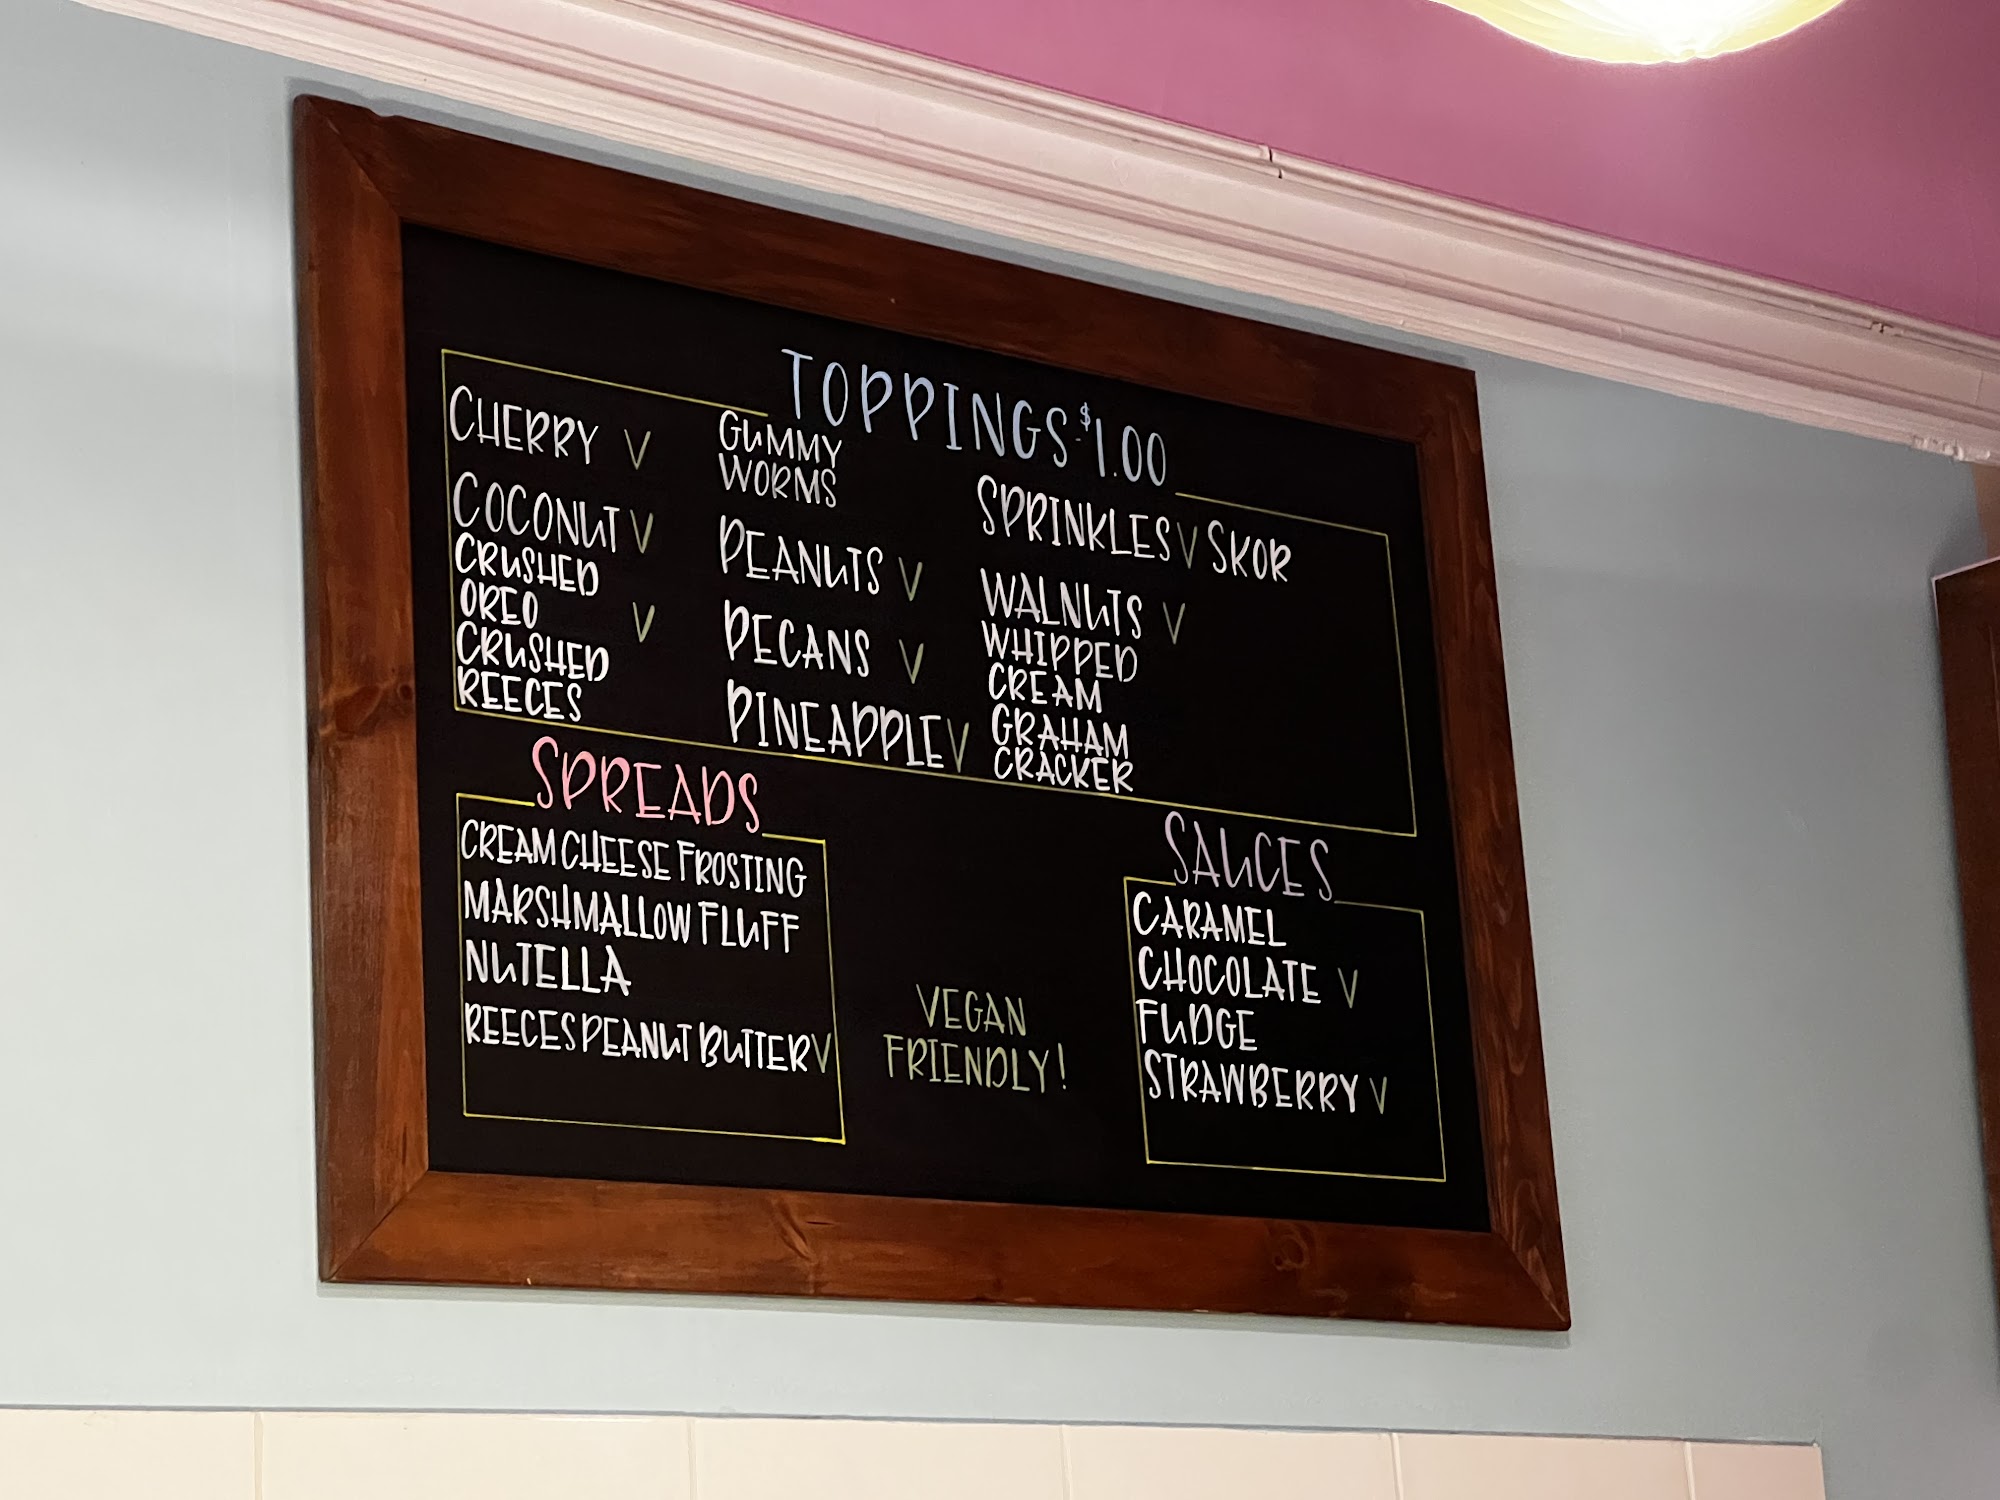 TOPPINGS-$1.00
CHERRY V
COCONUT V
CRUSHED
OREO V
CRUSHED
REECES
GUMMY
WORMS
PEANUTS V
PECANS V
PINEAPPLE V
SPRINKLES V SKOR
WALNUTS V
WHIPPED
CREAM
GRAHAM
CRACKER
SPREADS
CREAM CHEESE FROSTING
MARSHMALLOW FLUFF
NUTELLA
REECES PEANUT BUTTER V
VEGAN
FRIENDLY!
SAUCES
CARAMEL
CHOCOLATE V
FUDGE
STRAWBERRY V